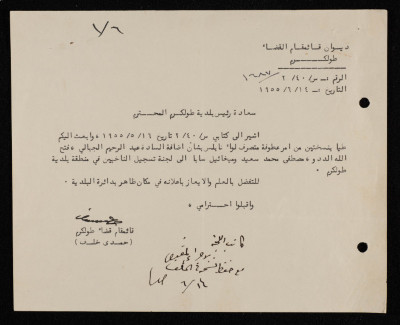 ديوان قائمقام القضاء
طولكرم
الرقم :- س/٢/٤٠
التاريخ :- ١٩٥٥/٦/١٤
سعادة رئيس بلدية طولكرم المحترم
اشير الى كتابي س/٢/٤٠ تاريخ ١٩٥٥/٥/١٦ وابعث اليكم
طيا بنسختين من امر عطوفة متصرف لواء نابلس بشأن اضافة السادة عبد الرحيم الجبالي وفتح
الله الددو ومصطفى محمد سعيد وميخائيل سابا الى لجنة تسجيل الناخبين في منطقة بلدية
طولكرم .
للتفضل بالعلم والايعاز باعلانه في مكان ظاهر بدائرة البلدية .
واقبلوا احترامي ،
قائمقام قضاء طولكرم
( حمدي خلف )
كاتب اللجنة
٦/١٦